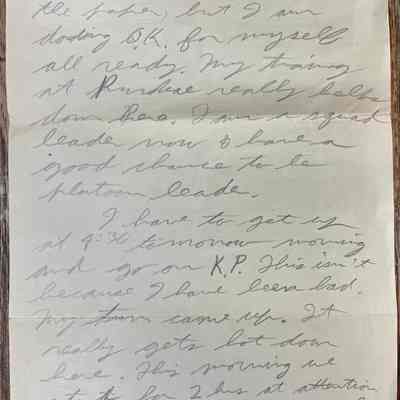 the paper, but I am
doding O.K. for myself
all ready. My training
at Purdue really helps
down there. I am a squad
leader now & have a
good chance to be
platoon leader.
I have to get up
at 4:30 tomorrow morning
and go on K.P. This isn't
because I have been bad.
My turn came up. It
really gets hot down
here. This morning we
for 2 hrs at attention